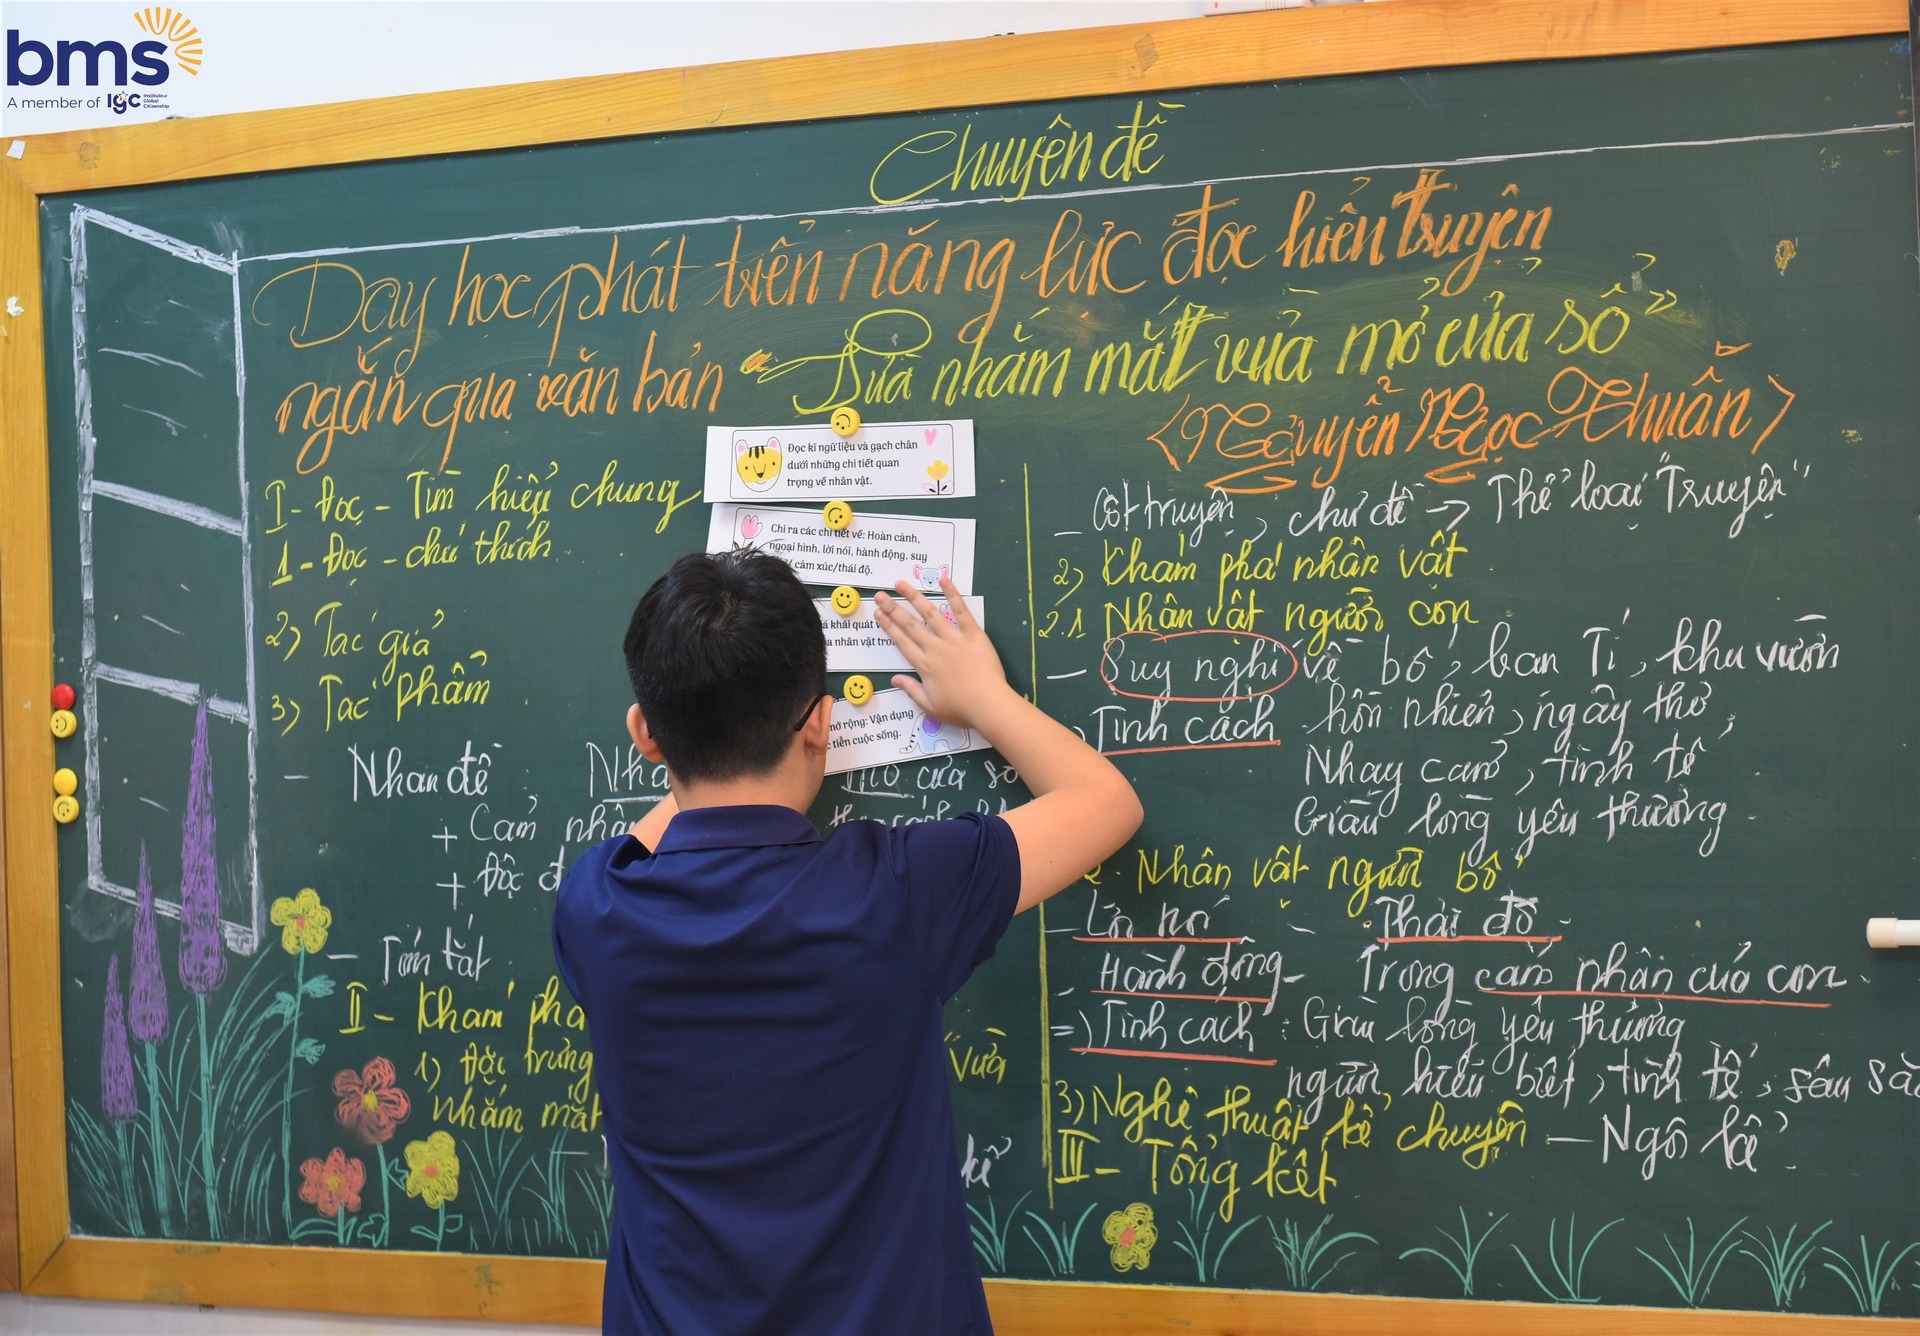 bms
A member of IGC Institute of Global Citizenship
Chuyên đề
Dạy học phát triển năng lực đọc hiểu truyện
ngắn qua văn bản "Vừa nhắm mắt vừa mở cửa sổ"
<Nguyễn Ngọc Thuần>
Đọc kĩ ngữ liệu và gạch chân
dưới những chi tiết quan
trọng về nhân vật.
Chỉ ra các chi tiết về: Hoàn cảnh,
ngoại hình, lời nói, hành động, suy
/ cảm xúc/thái độ.
khái quát
nhân vật
mở rộng: Vận dụng
tiễn cuộc sống.
I - Đọc - Tìm hiểu chung
1 - Đọc - chú thích
2) Tác giả
3) Tác phẩm
- Nhan đề : mở cửa sổ
+ Cảm nhận
+ Độc
- Tóm tắt
II - Khám phá
1) Đặc trưng "Vừa
nhắm mắt
kể
- Cốt truyện, chủ đề -> Thể loại "Truyện"
2) Khám phá nhân vật
2.1 Nhân vật người con
- Suy nghĩ về bố, bạn Tí, khu vườn
Tính cách hồn nhiên, ngây thơ,
Nhạy cảm, tinh tế
Giàu lòng yêu thương.
2. Nhân vật người bố
- Lời nói - Thái độ
- Hành động - Trong cảm nhận của con.
=) Tính cách : Giàu lòng yêu thương
người, hiểu biết, tinh tế, sâu
3) Nghệ thuật kể chuyện - Ngôi kể
III - Tổng kết